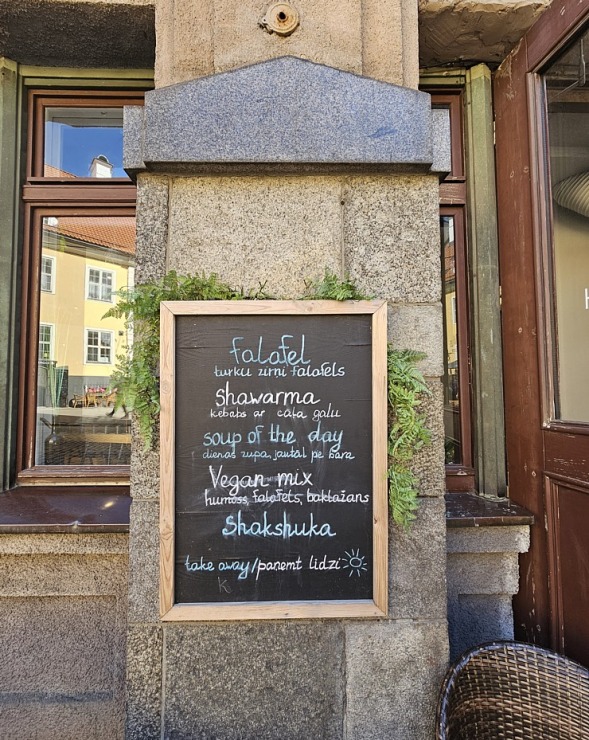 falafel
turku zirņi falafels
Shawarma
kebabs ar cāļa gaļu
soup of the day
dienas zupa, jautāt pe bāra
Vegan mix
humoss, falafels, baklažans
Shakshuka
take away/paņemt līdzi
K